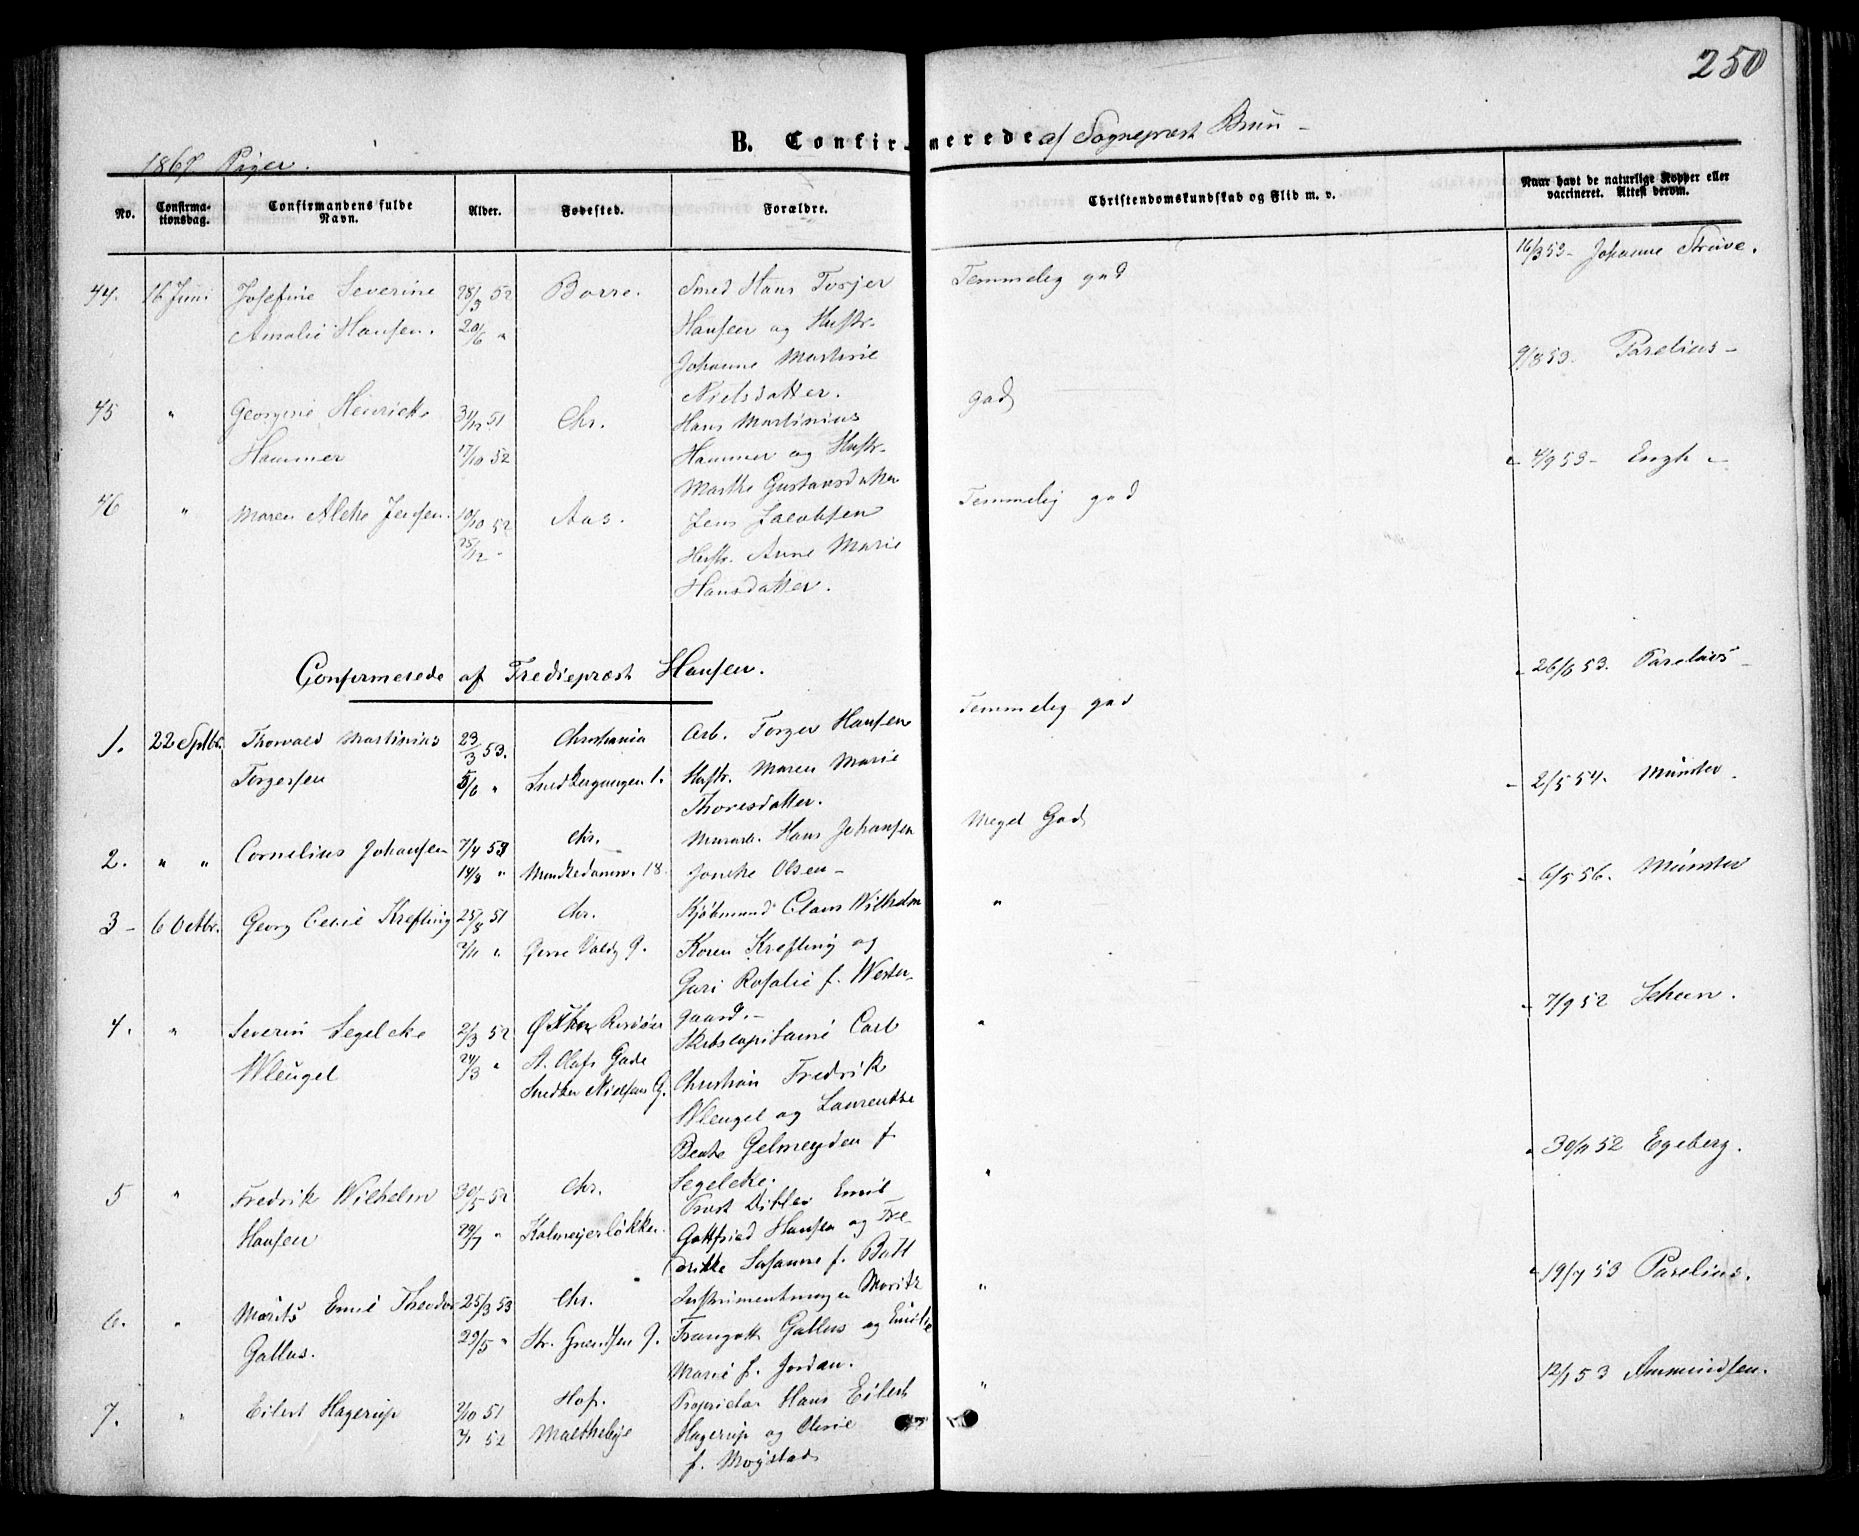 250
B. Confirmerede af Sognepræst Brun -
1867 Piger.
No. Confirma-tionsdag. Confirmandens fulde Navn. Alder. Fødested. Forældre. Christendomskundskab og Flid m. v. Naar havt de naturlige Kopper eller vaccineret. Attest derom.
44. 16 Juni Josefine Severine 28/3 52 Borre. Smed Hans Torjer Temmelig god 16/3 53 - Johanne Struve.
Amalie Hansen. 20/6 " Hansen og Hustr.
Johanne Martinie
Nielsdatter.
45 " Georgine Henricke 51 Chr. Hans Martinius god 9/8 53. Parelius -
Hammer 17/10 52 Hammer og Hustr.
Marthe Gustavsdatter
46 " Maren Alette Jensen. 10/10 52 Aas. Jens Jacobsen Temmelig god 4/9 53 - Engh -
25/12 - Hustr. Anne Marie
Hansdatter.
Confirmerede af Trediepræst Hansen.
1. 22 Sptbr. Thorvald Martinius 23/3 53. Christiania Arb. Torger Hansen Temmelig god 26/6 53. Parelius -
Torgersen 5/6 " Snedkergangen 1. Hustr. Maren Marie
Thoresdatter.
2. " " Cornelius Johansen 7/4 53 Chr. Murarb. Hans Johansen Meget God 2/5 54. Münster.
14/8 " Munkedamsv. 18. Olsen -
3 - 6 Octbr. Georg Cecil Krefting 25/8 51 Chr. Kjøbmand Claus Wilhelm " 6/5 56. Münster
2/11 " Voldg. 9. Koren Krefting og
Guri Rosalie f. Wester-
gaard. -
4. " Severin Segelcke 2/3 52 Ø Risøer Skibscapitaine Carl " 7/9 52 Scheen.
Wleugel 24/3 " St. Olafs Gade Christian Fredrik
Snedker Nielsens G. Wleugel og Laurentse
Beate Gelmeyden f.
Segelcke.
5 " Fredrik Wilhelm 30/5 52 Chr. Præst Ditlev Emil " 30/11 52 Egeberg.
Hansen 29/7 " Kalmeyerløkken. Gottfried Hansen og Fre
drikke Susanne f. Bull
6. " Morits Emil Theodor 25/3 53 Chr. Instrumentmager Moritz " 19/7 53 Parelius.
Gallus. 29/5 " Str. Grændsen 9. Traugott Gallus og Emilie
Marie f. Jordan.
7. " Eilert Hagerup 2/10 51 Hof. Proprietær Hans Eilert " 12/1 53 Ammundsen.
52 Maltheby Hagerup og Olivie
f. Mogstad